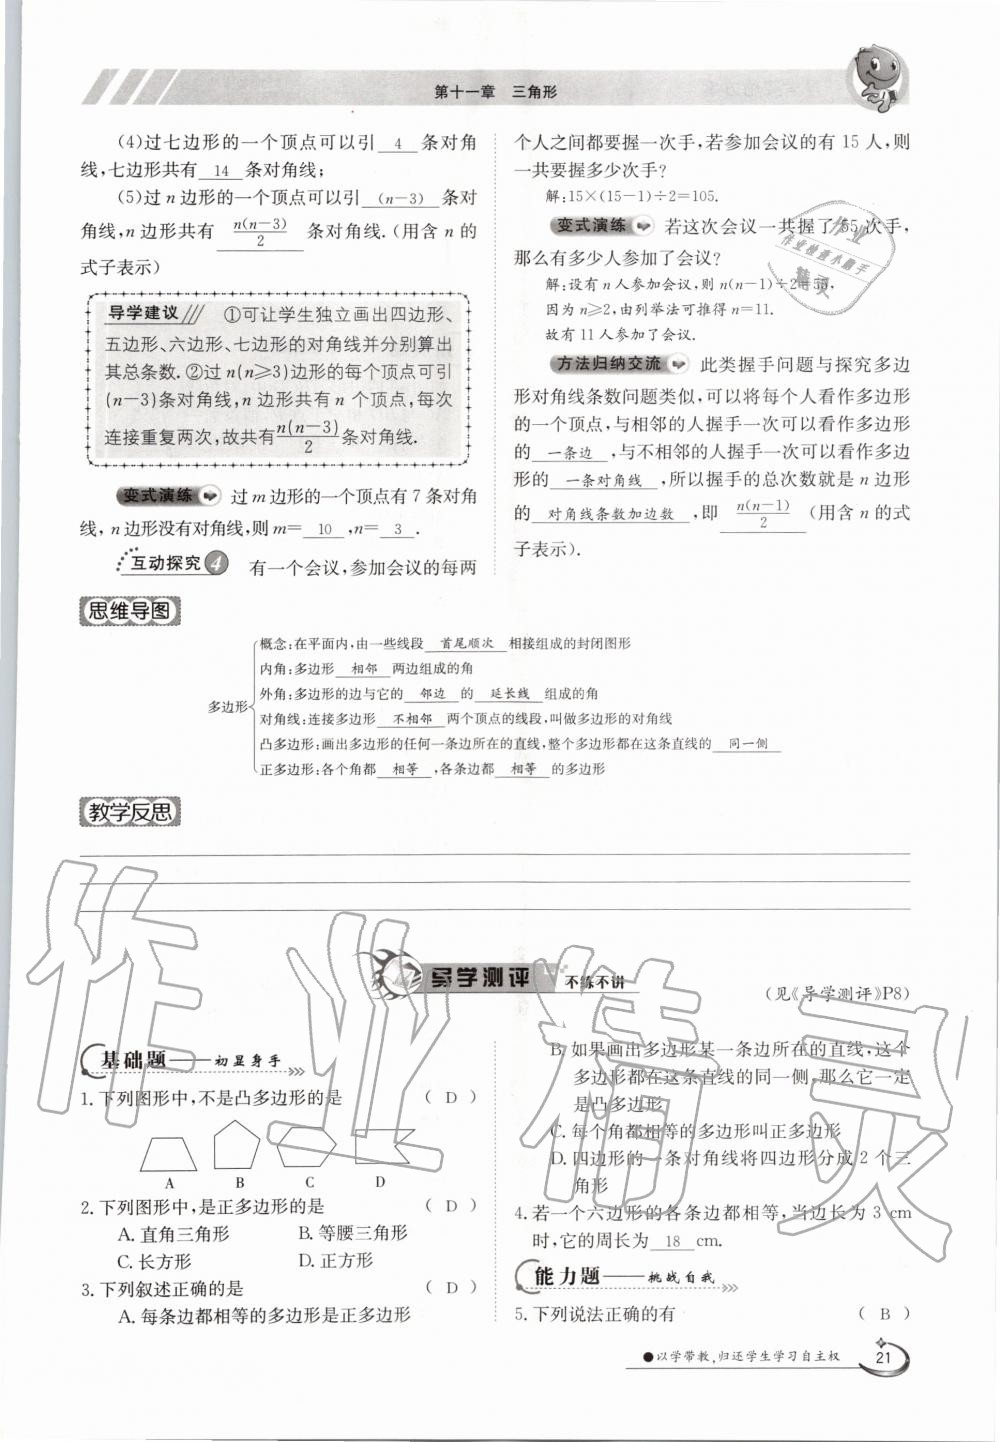 第十一章 三角形
(4)过七边形的一个顶点可以引 4 条对角
线,七边形共有 14 条对角线;
(5)过 n 边形的一个顶点可以引 (n-3) 条对
角线,n 边形共有 n(n-3)/2 条对角线.(用含 n 的
式子表示)
导学建议 ①可让学生独立画出四边形、
五边形、六边形、七边形的对角线并分别算出
其总条数.②过 n(n≥3)边形的每个顶点可引
(n-3)条对角线,n 边形共有 n 个顶点,每次
连接重复两次,故共有n(n-3)/2条对角线.
变式演练 过 m 边形的一个顶点有 7 条对角
线,n 边形没有对角线,则 m= 10 ,n= 3 .
互动探究4 有一个会议,参加会议的每两
个人之间都要握一次手,若参加会议的有 15 人,则
一共要握多少次手?
解:15×(15-1)÷2=105.
变式演练 若这次会议一共握了 55 次手,
那么有多少人参加了会议?
解:设有 n 人参加会议,则 n(n-1)÷2=55,
因为 n≥2,由列举法可推得 n=11.
故有 11 人参加了会议.
方法归纳交流 此类握手问题与探究多边
形对角线条数问题类似,可以将每个人看作多边形
的一个顶点,与相邻的人握手一次可以看作多边形
的 一条边 ,与不相邻的人握手一次可以看作多边
形的 一条对角线 ,所以握手的总次数就是 n 边形
的 对角线条数加边数 ,即 n(n-1)/2 (用含 n 的式
子表示).
思维导图
多边形
概念:在平面内,由一些线段 首尾顺次 相接组成的封闭图形
内角:多边形 相邻 两边组成的角
外角:多边形的边与它的 邻边 的 延长线 组成的角
对角线:连接多边形 不相邻 两个顶点的线段,叫做多边形的对角线
凸多边形:画出多边形的任何一条边所在的直线,整个多边形都在这条直线的 同一侧
正多边形:各个角都 相等 ,各条边都 相等 的多边形
教学反思
导学测评 不练不讲
(见《导学测评》P8)
基础题——初显身手
1.下列图形中,不是凸多边形的是 ( D )
A B C D
2.下列图形中,是正多边形的是 ( D )
A.直角三角形 B.等腰三角形
C.长方形 D.正方形
3.下列叙述正确的是 ( D )
A.每条边都相等的多边形是正多边形
B.如果画出多边形某一条边所在的直线,这个
多边形都在这条直线的同一侧,那么它一定
是凸多边形
C.每个角都相等的多边形叫正多边形
D.四边形的一条对角线将四边形分成 2 个三
角形
4.若一个六边形的各条边都相等,当边长为 3 cm
时,它的周长为 18 cm.
能力题——挑战自我
5.下列说法正确的有 ( B )
●以学带教,归还学生学习自主权 21
作业
作业检查小助手
精灵
作业精灵